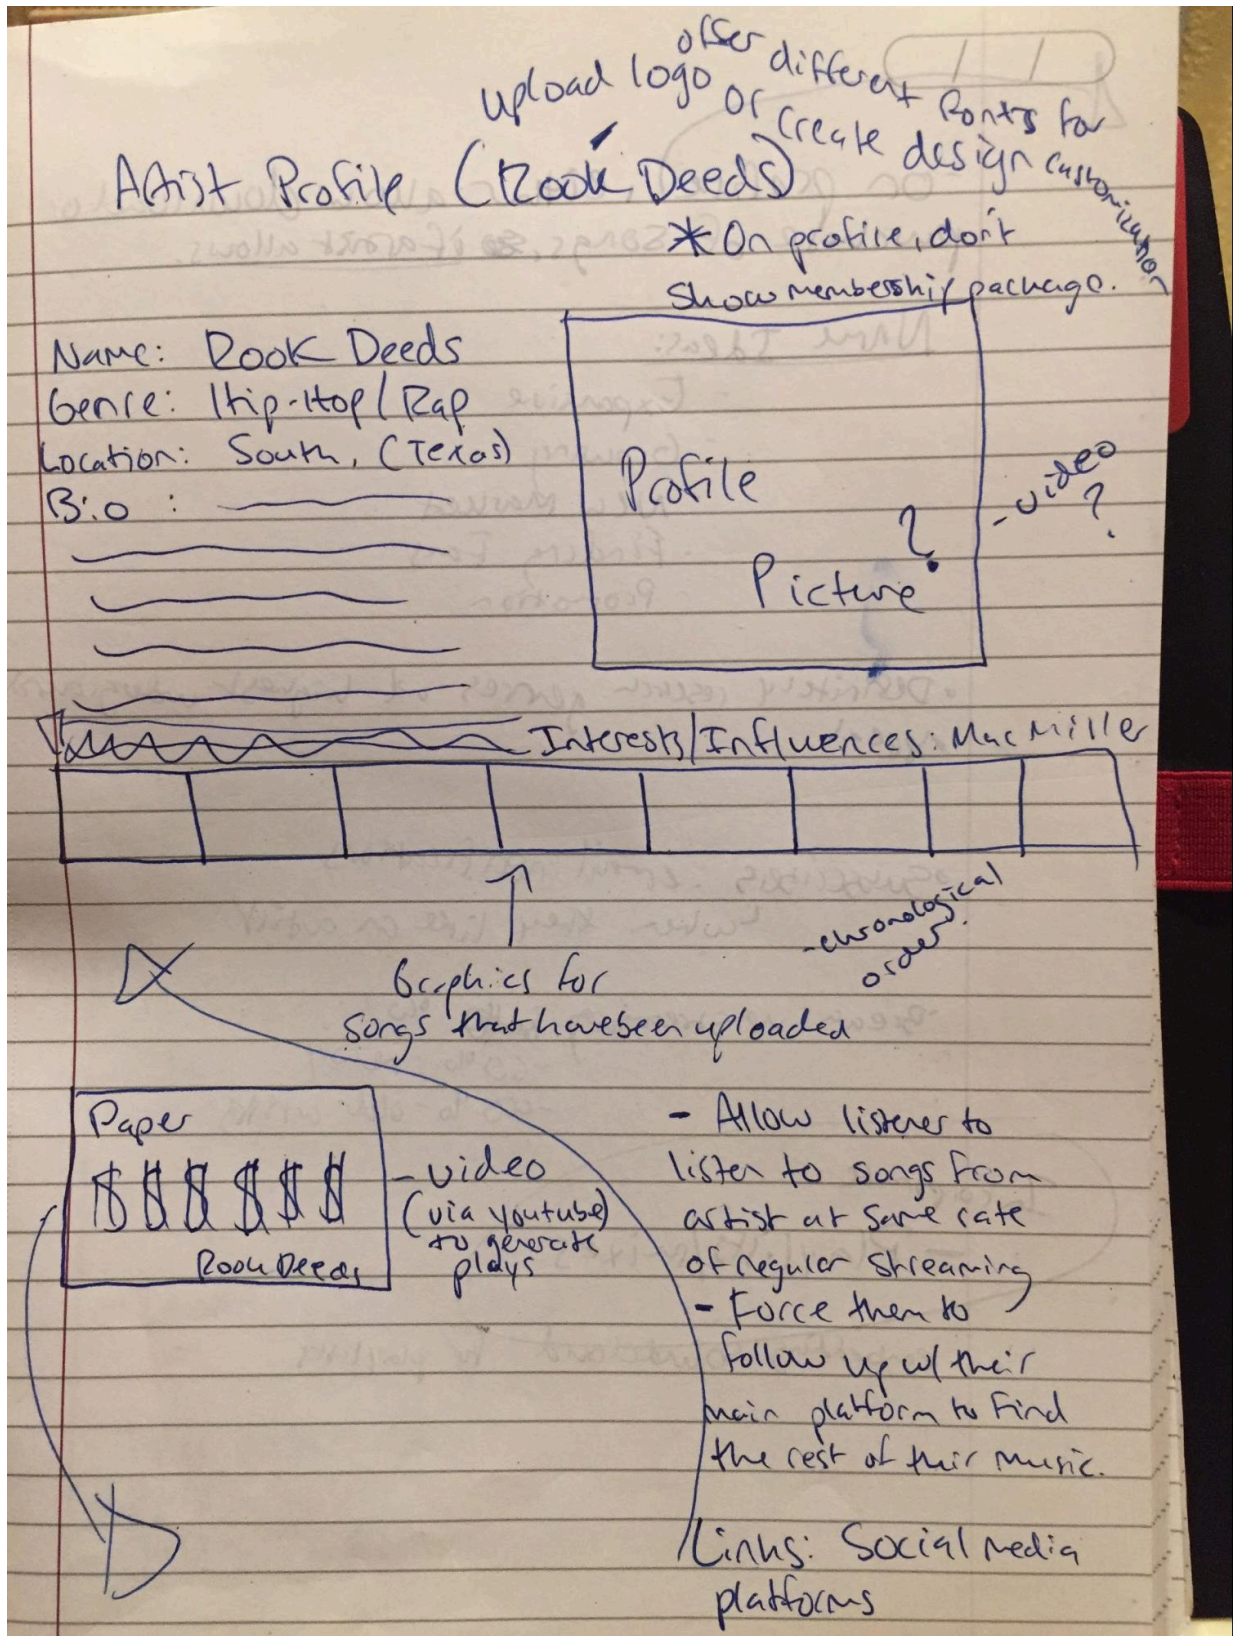 upload logo or create design
offer different fonts for customization
Artist Profile (Rook Deeds)
* On profile, don't
show membership package.
Name: Rook Deeds
Genre: Hip-Hop/Rap
Location: South, (Texas)
Bio :
Profile
Picture ?
- video
?
Interests/Influences: Mac Miller
- chronological
order.
Graphics for
songs that have been uploaded
Paper
$ $ $ $ $ $
Rook Deeds
- video
(via youtube)
to generate
plays
- Allow listener to
listen to songs from
artist at same rate
of regular streaming
- Force them to
follow up w/ their
main platform to find
the rest of their music.
Links: Social media
platforms
Name Ideas:
- Expertise
- Finding Fans
- Promotion